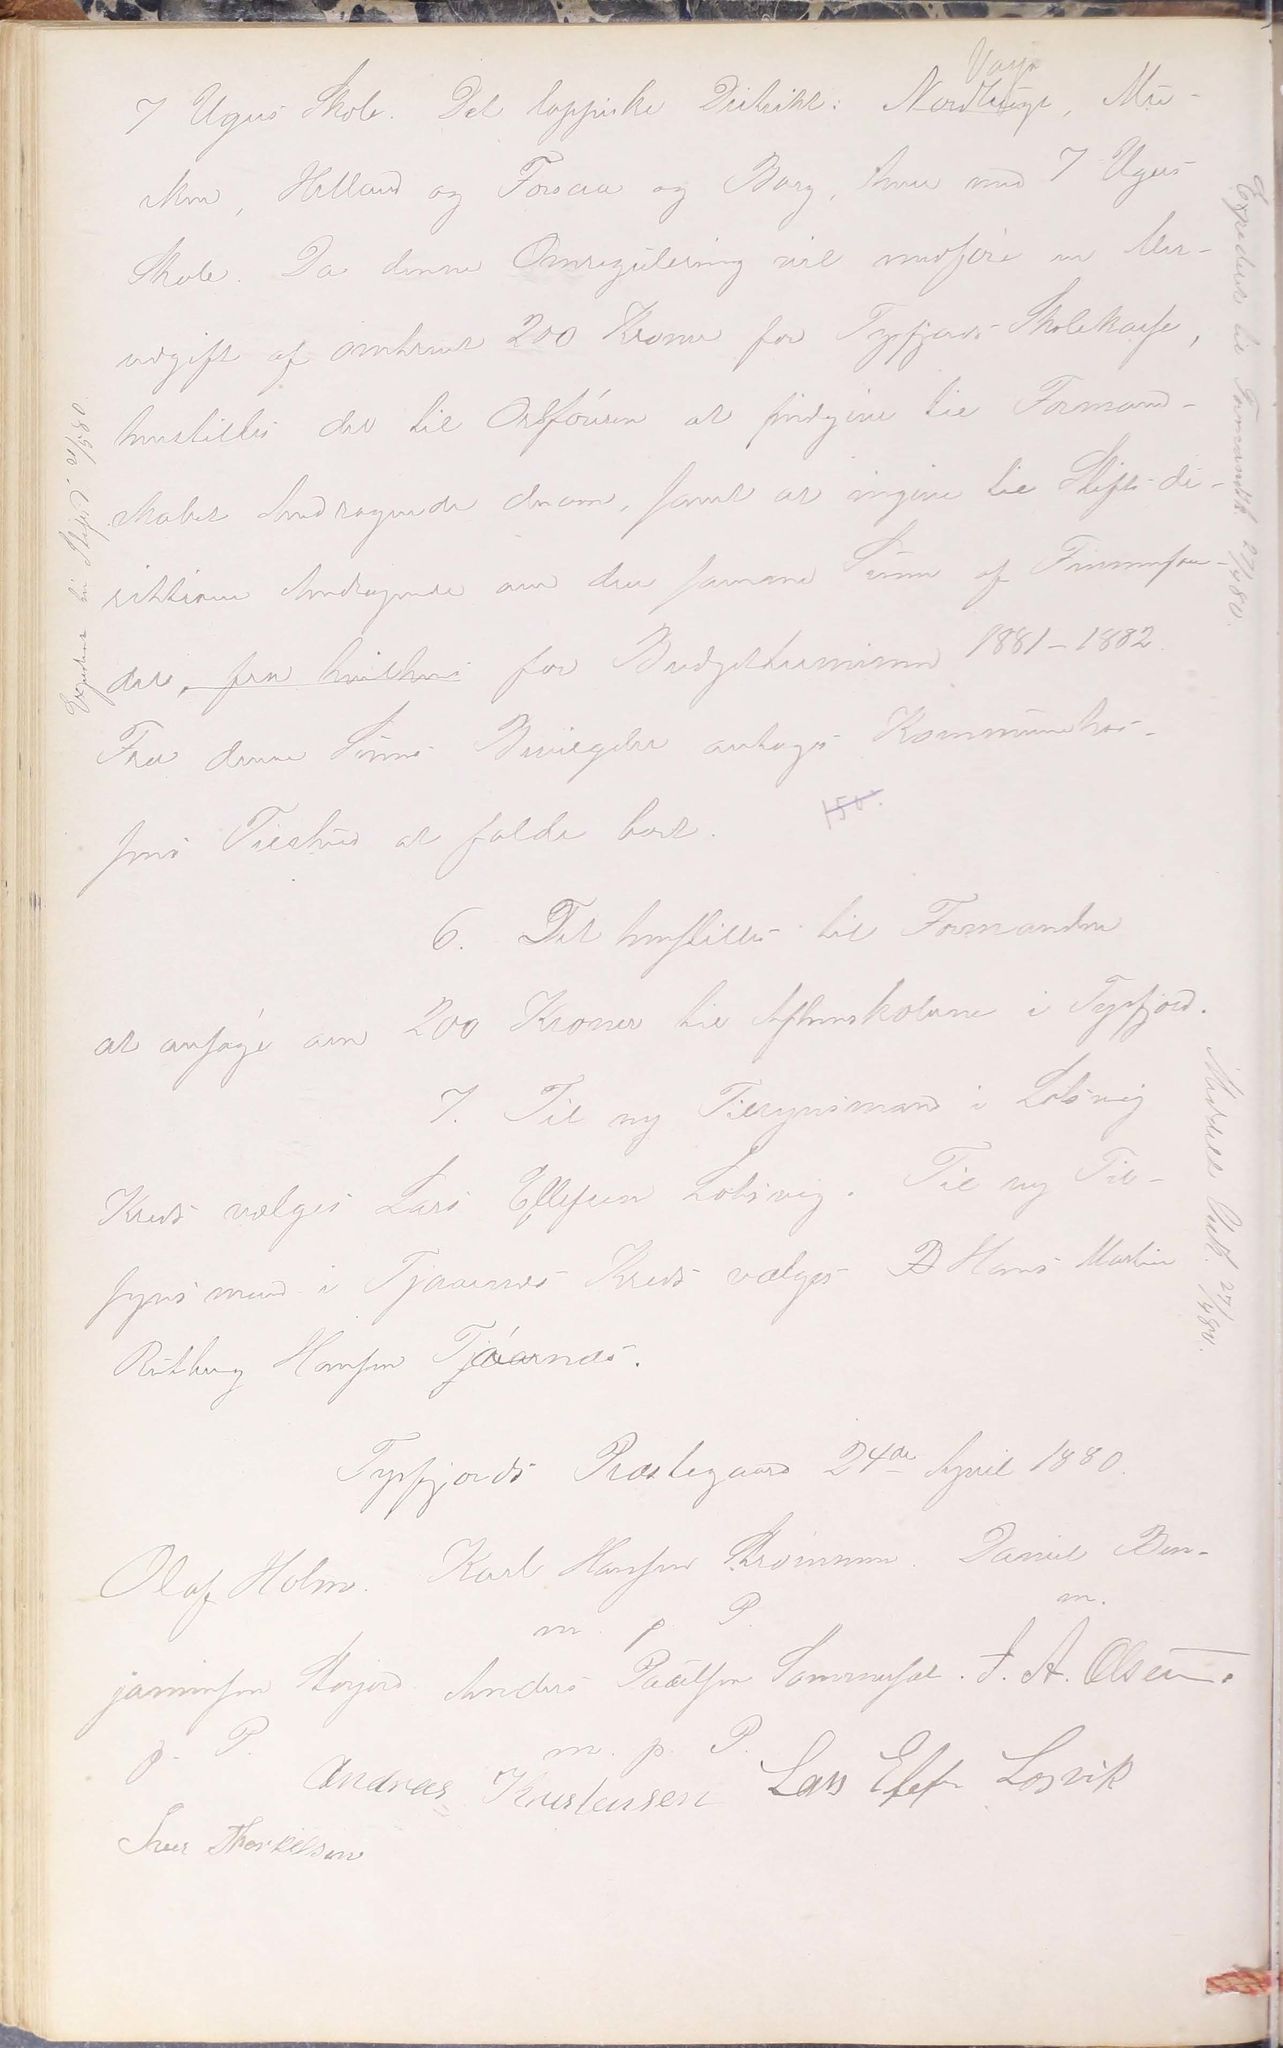 7 Ugers Skole. Det lappiske Distrikt: Nordbugt, Mu-
sken, Helland og Forsaa og Borg, hver med 7 Ugers
Skole. Da denne Omregulering vil medføre en Mer-
udgift af omtrent 200 Kroner for Tysfjords Skolekasse,
henstilles det til Ordføreren at indgive til Formand-
skabet Andragende derom, samt at ingive til Stiftsdi-
rektionen Andragende om den samme Sum af Finnefon-
det, for Budgetterminen 1881-1882.
Fra denne Sums Bevilgelse antages Kommunekas-
sens Tilskud at falde bort.
150.
6. Det henstilles til Formanden
at ansøge om 200 Kroner til Aftenskolerne i Tysfjord.
7. Til ny Tilsynsmand i Losvig
Kreds vælges Lars Ellefsen Losvig. Til ny Til-
synsmand i Tjaarnes Kreds vælges Hans Martin
Hansen Tjaarnes.
Tysfjords Præstegaard 24de April 1880.
Olaf Holm. Karl Hansen Strømmen. Daniel Ben-
m. p. P. m.
jaminsen Storjord. Anders Paulsen Sommersel. J. A. Olsen.
p. P. m. p. P.
Andreas Kristensen Lars Elefs Losvik
Iver Thorkelsen
Expederet til Formandsk. 27/4 80.
Meddelt Vedk. 27/4 80.
Expederet til Stiftsd. 21/5 80.